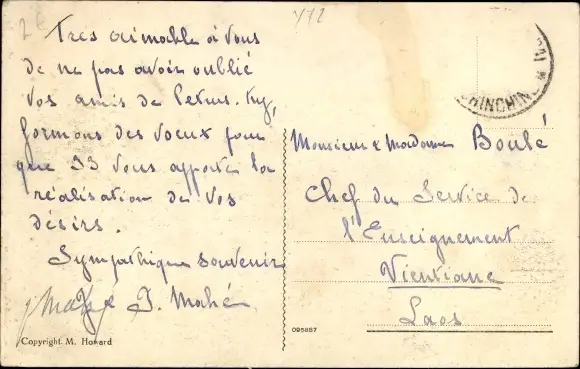 Très aimable à vous
de ne pas avoir oublié
vos amis de Petrus. Ky,
formons des voeux pour
que 33 vous apporte la
réalisation de vos
désirs.
Sympathique souvenir
J. Mahé
Copyright M. Howard
Y12
CHINCHIN
Monsieur & Madame Boulé
Chef du Service de
l'Enseignement
Vientiane
Laos
095887